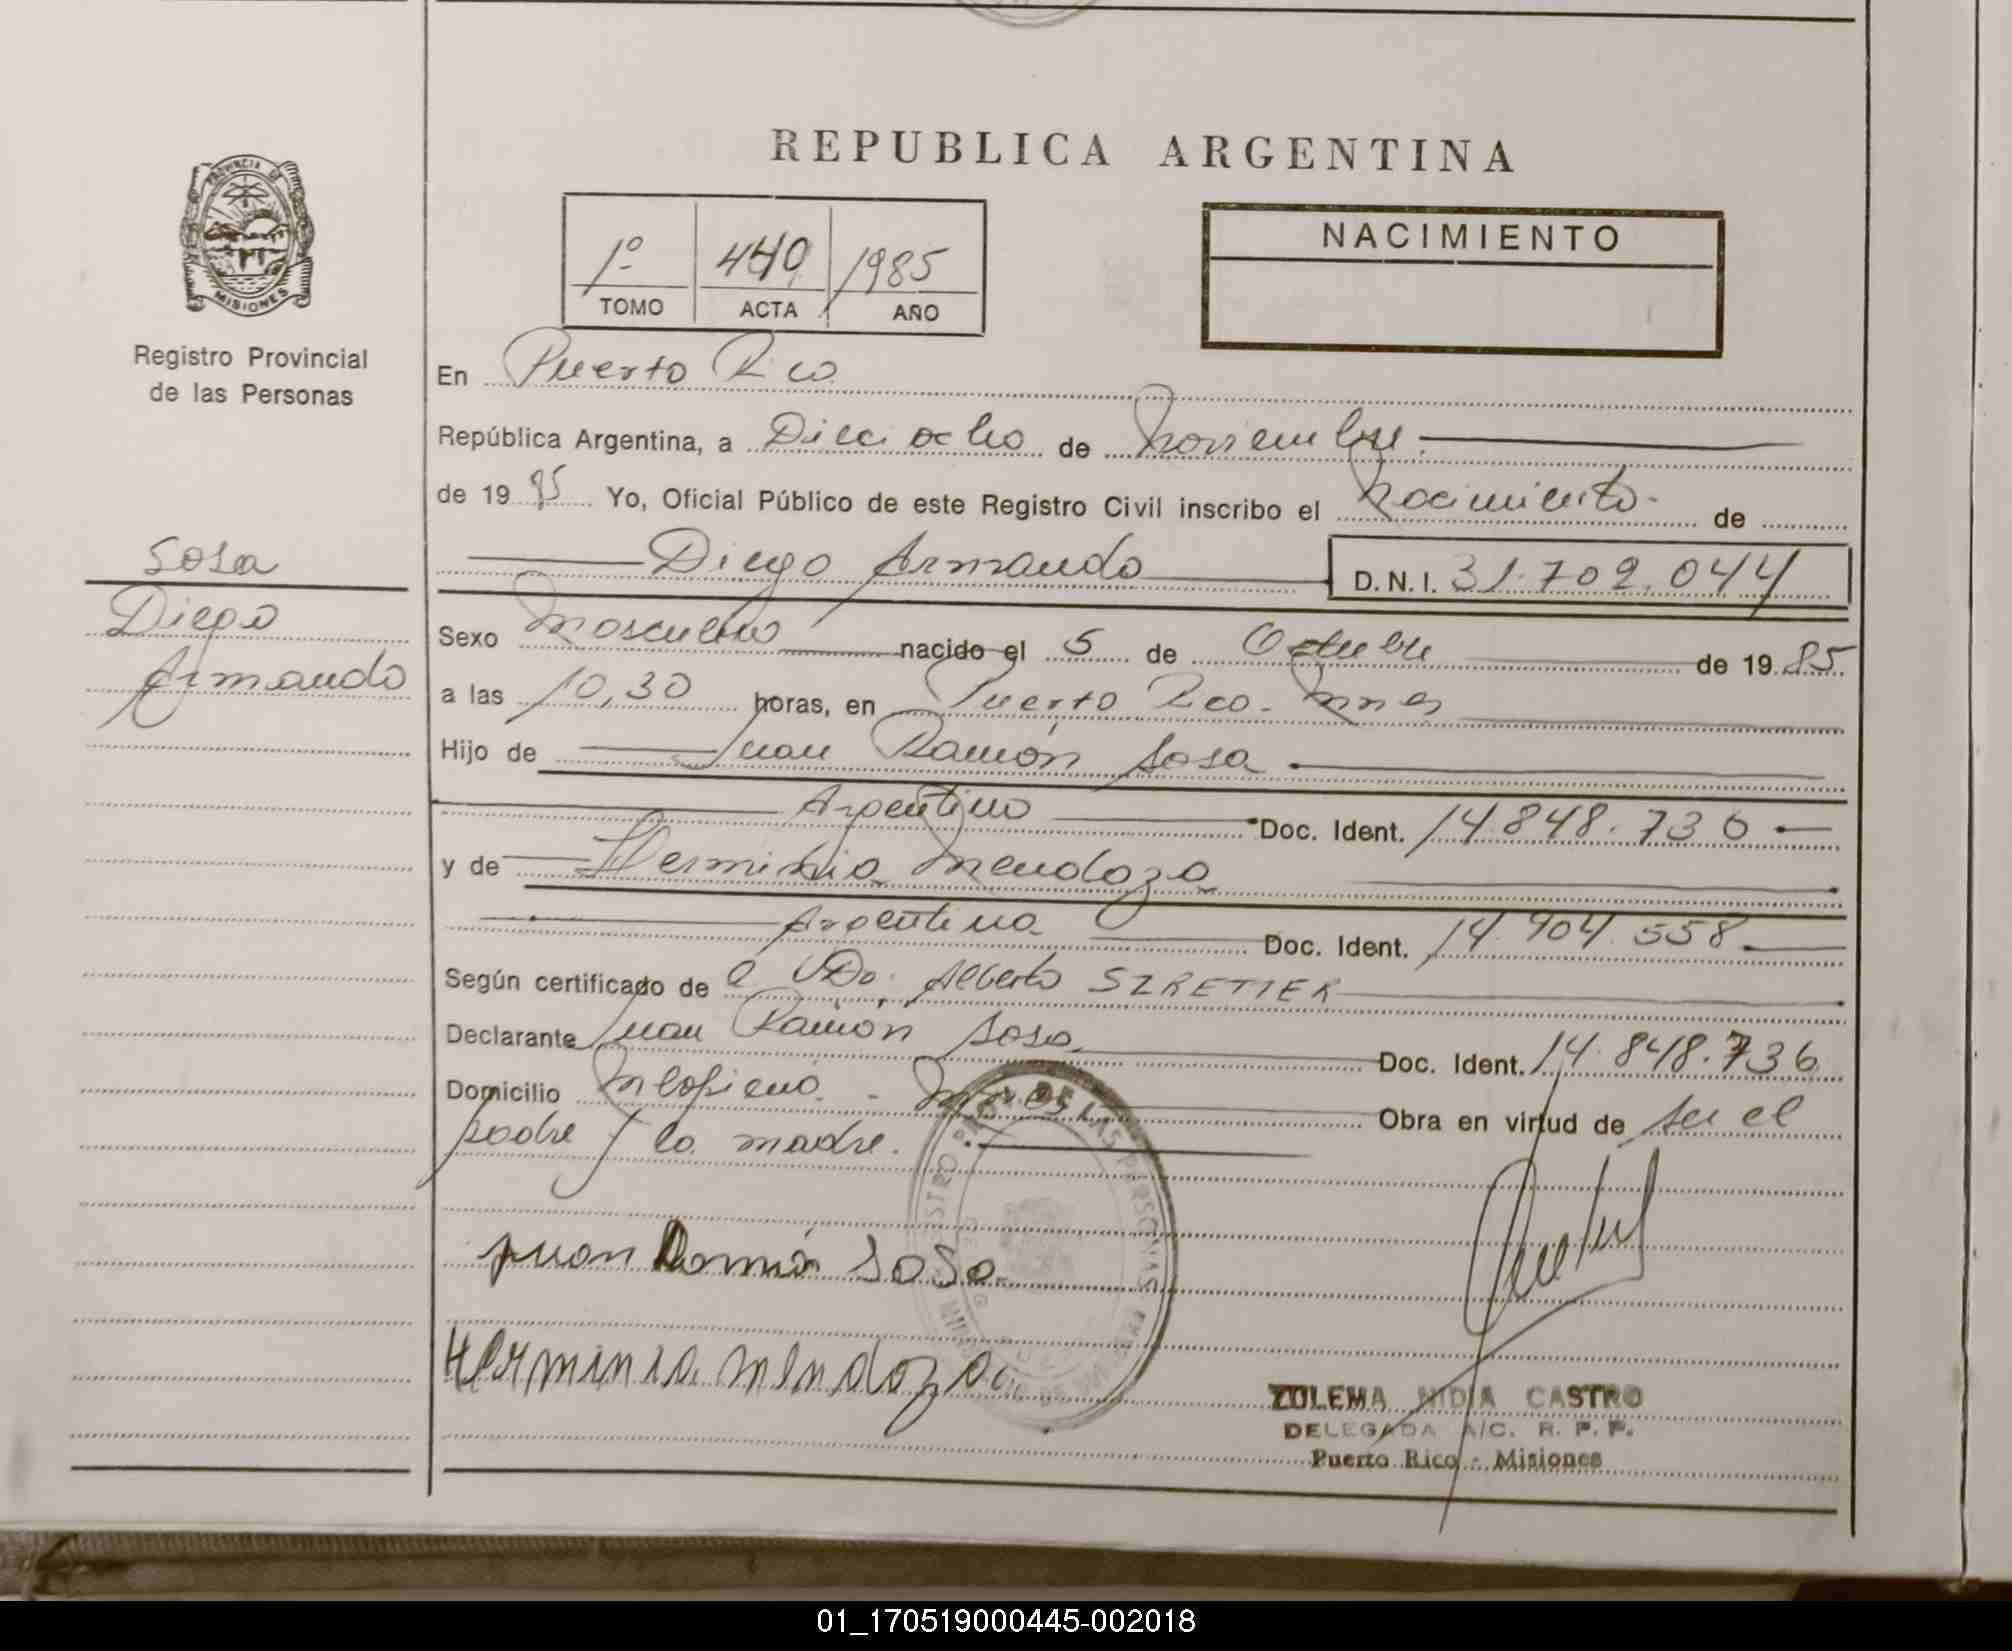 REPUBLICA ARGENTINA
PROVINCIA DE
MISIONES
Registro Provincial
de las Personas
1º 440 1985
TOMO ACTA AÑO
NACIMIENTO
Sosa
Diego
Armando
En Puerto Rico
República Argentina, a Dieciocho de Noviembre
de 19 85 Yo, Oficial Público de este Registro Civil inscribo el Nacimiento de
Diego Armando D.N.I. 31.702.044
Sexo Masculino nacido el 5 de Octubre de 19 85
a las 10,30 horas, en Puerto Rico - Mnes
Hijo de Juan Ramón Sosa
Argentino Doc. Ident. 14.848.736
y de Herminia Mendoza
Argentina Doc. Ident. 14.904.558
Según certificado de Alberto SZRETTER
Declarante Juan Ramón Sosa Doc. Ident. 14.848.736
Domicilio - Mnes Obra en virtud de ser el
padre y la madre.
REGISTRO PROV. DE LAS PERSONAS
Juan Ramón Sosa
Herminia Mendoza
ZULEMA NIDIA CASTRO
DELEGADA A/C. R. P. P.
Puerto Rico - Misiones
01_170519000445-002018